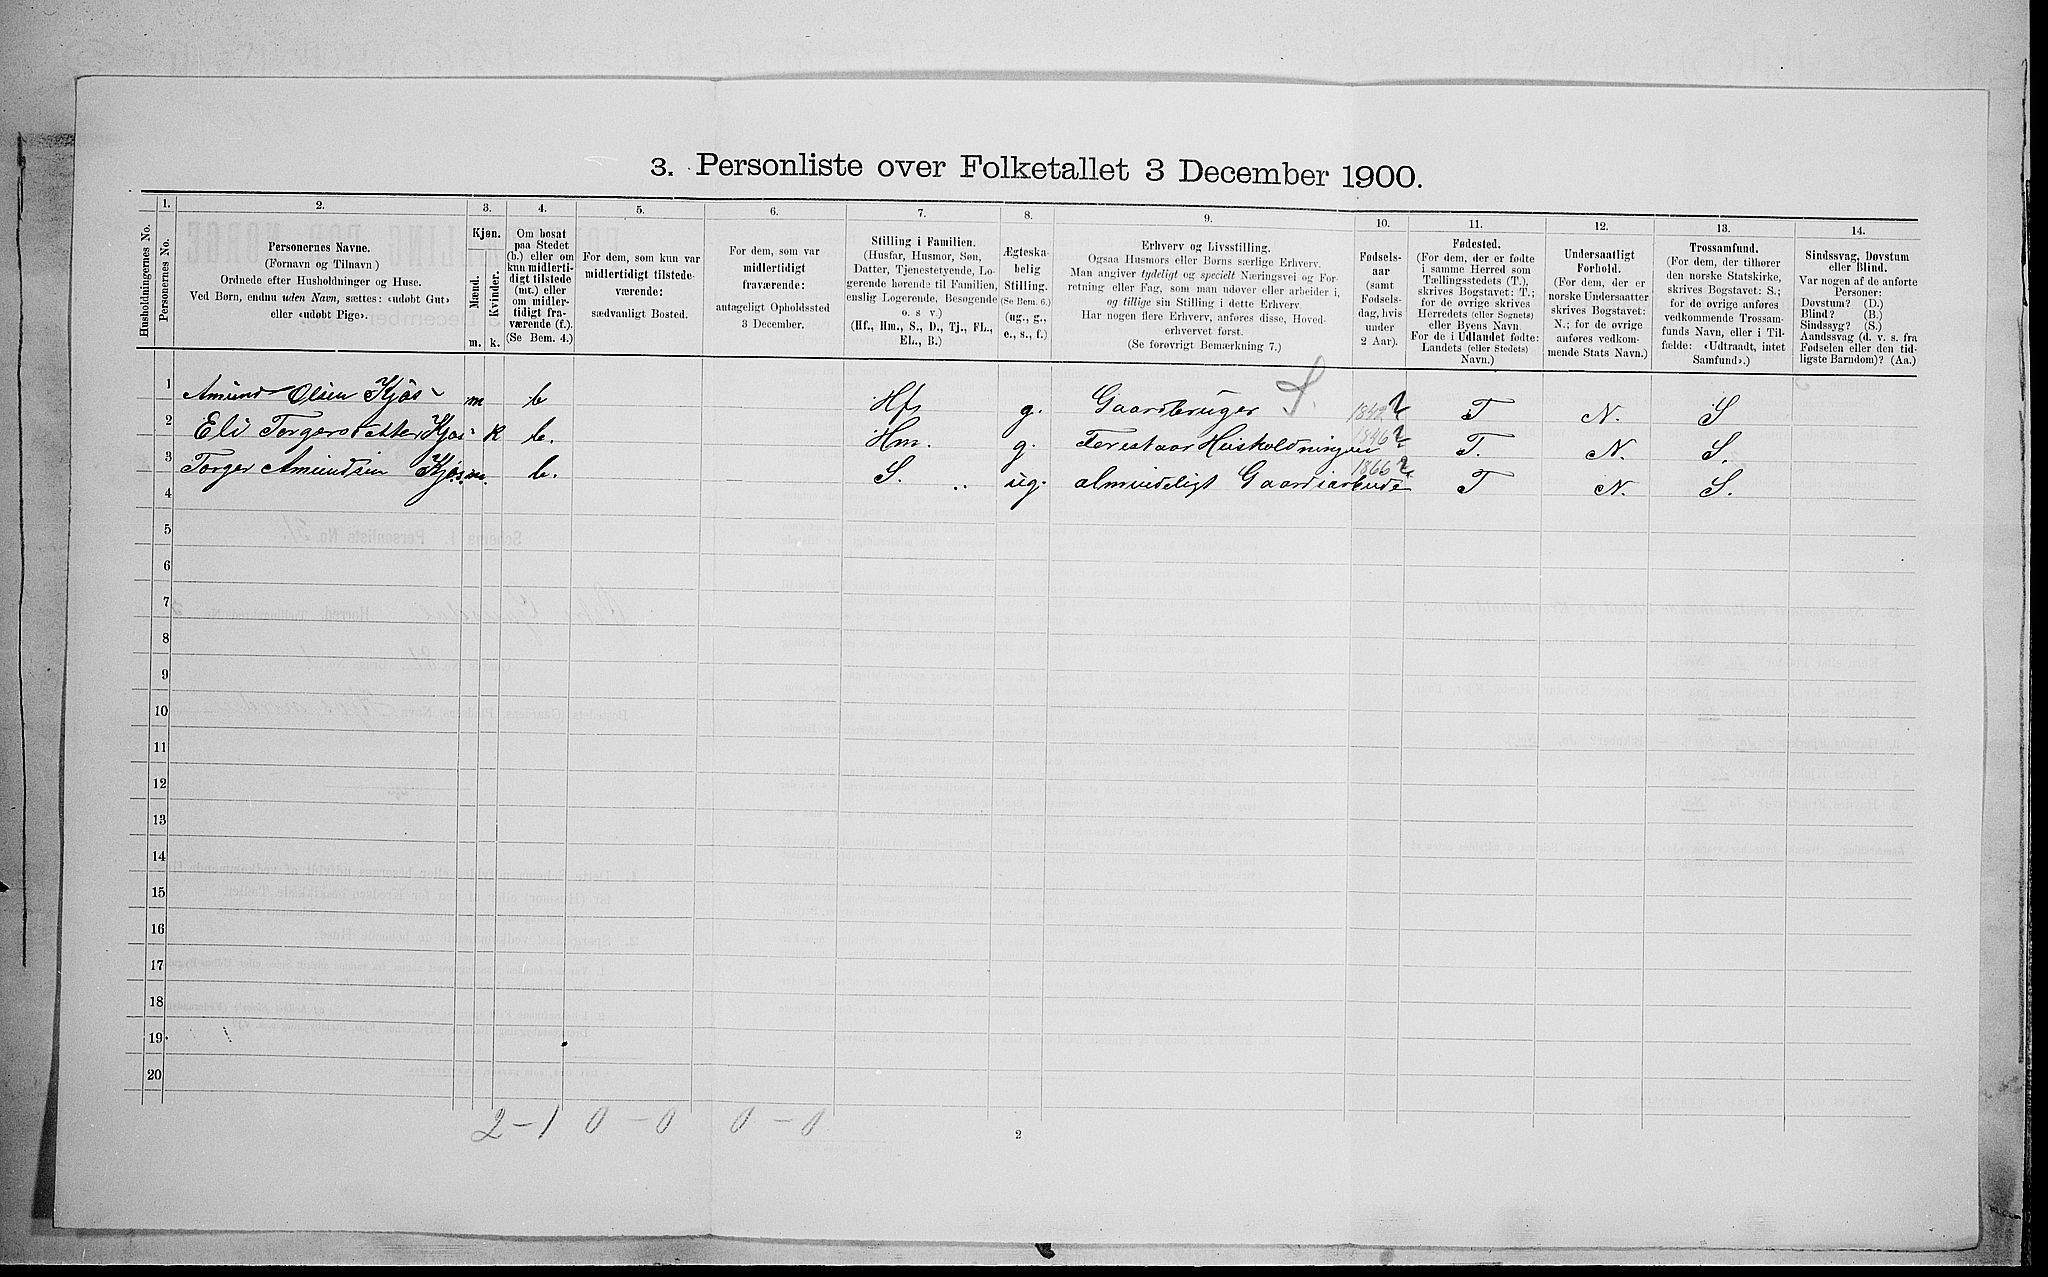 3. Personliste over Folketallet 3 December 1900.
1. 2. 3. 4. 5. 6. 7. 8. 9. 10. 11. 12. 13. 14.
Husholdningernes No.
Personernes No.
Personernes Navne.
(Fornavn og Tilnavn)
Ordnede efter Husholdninger og Huse.
Ved Børn, endnu uden Navn, sættes: «udøbt Gut»
eller «udøbt Pige».
Kjøn.
Mænd.
Kvinder.
m. k.
Om bosat
paa Stedet
(b.) eller om
kun midlerti-
digt tilstede
(mt.) eller
om midler-
tidigt fra-
værende (f.).
(Se Bem. 4.)
For dem, som kun var
midlertidigt tilstede-
værende:
sædvanligt Bosted.
For dem, som var
midlertidigt
fraværende:
antageligt Opholdssted
3 December.
Stilling i Familien.
(Husfar, Husmor, Søn,
Datter, Tjenestetyende, Lo-
gerende hørende til Familien,
enslig Logerende, Besøgende
o. s. v.)
(Hf., Hm., S., D., Tj., FL.,
EL., B.)
Ægteska-
belig
Stilling.
(Se Bem. 6.)
(ug., g.,
e., s., f.)
Erhverv og Livsstilling.
Ogsaa Husmors eller Børns særlige Erhverv.
Man angiver tydeligt og specielt Næringsvei og For-
retning eller Fag, som man udøver eller arbeider i,
og tillige sin Stilling i dette Erhverv.
Har nogen flere Erhverv, anføres disse, Hoved-
erhvervet først.
(Se forøvrigt Bemærkning 7.)
Fødsels-
aar
(samt
Fødsels-
dag, hvis
under
2 Aar).
Fødested.
(For dem, der er fødte
i samme Herred som
Tællingsstedets (T.),
skrives Bogstavet: T.;
for de øvrige skrives
Herredets (eller Sognets)
eller Byens Navn.
For de i Udlandet fødte:
Landets (eller Stedets)
Navn.)
Undersaatligt
Forhold.
(For dem, der er
norske Undersaatter
skrives Bogstavet:
N.; for de øvrige
anføres vedkom-
mende Stats Navn.)
Trossamfund.
(For dem, der tilhører
den norske Statskirke,
skrives Bogstavet: S.;
for de øvrige anføres
vedkommende Trossam-
funds Navn, eller i Til-
fælde: «Udtraadt, intet
Samfund».)
Sindssvag, Døvstum
eller Blind.
Var nogen af de anførte
Personer:
Døvstum? (D.)
Blind? (B.)
Sindssyg? (S.)
Aandssvag (d. v. s. fra
Fødselen eller den tid-
ligste Barndom)? (Aa.)
1 Amund Olsen Kjøs m b Hf. g. Gaardbruger S. 1842 T N. S
2 Eli Torgersdatter Kjøs k b. Hm. g. Forestaar Husholdningen 1846 T. N. S.
3 Torger Amundsen Kjøs m. b. S. ug. almindeligt Gaardsarbeide 1866 T N. S.
4
5
6
7
8
9
10
11
12
13
14
15
16
17
18
19
20
2 - 1 0 - 0 0 - 0
2